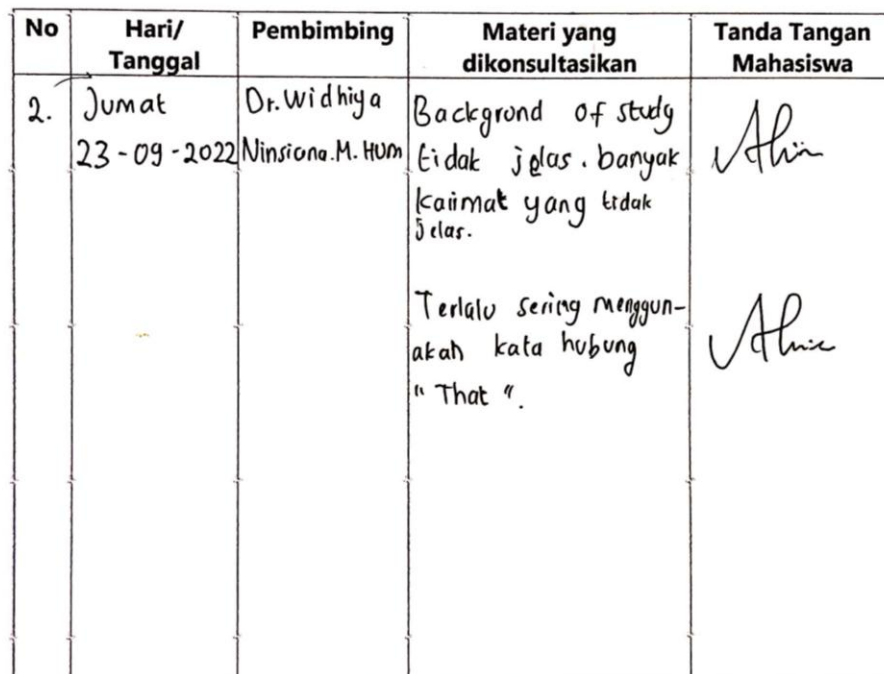 No Hari/ Tanggal Pembimbing Materi yang dikonsultasikan Tanda Tangan Mahasiswa
2. Jumat
23-09-2022
Dr. Widhiya
Ninsiana. M. HUM
Backgrond of study
tidak jelas. banyak
kaimat yang tidak
jelas.
Terlalu sering menggun-
akan kata hubung
" That ".